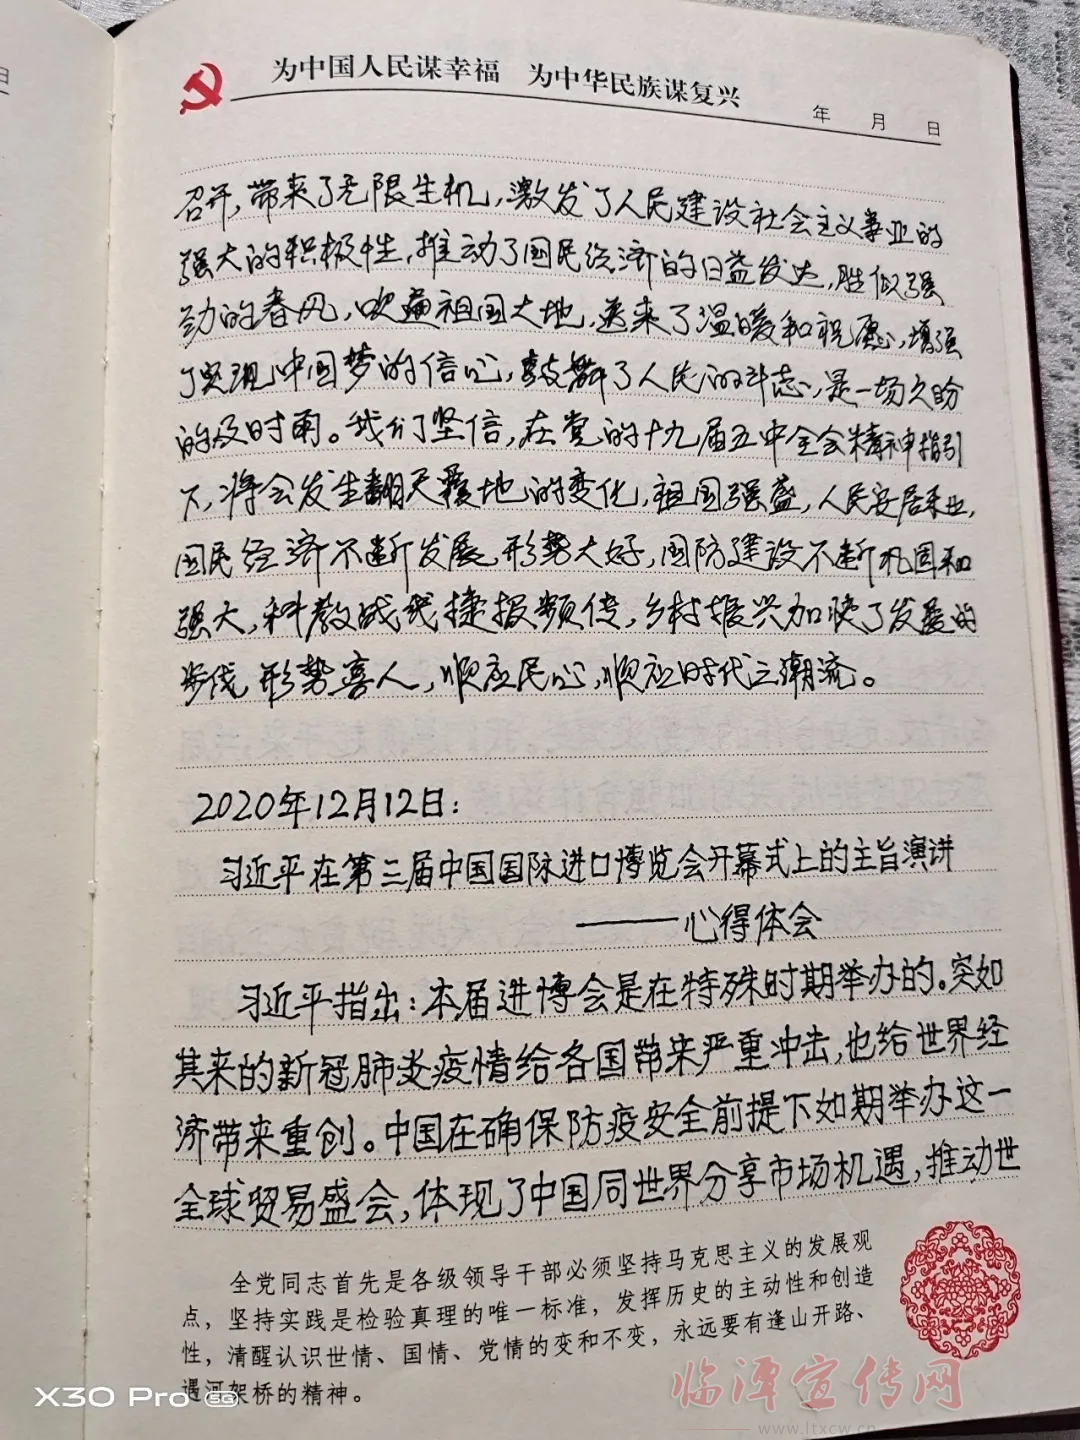 为中国人民谋幸福 为中华民族谋复兴
年 月 日
召开,带来了无限生机,激发了人民建设社会主义事业的
强大的积极性,推动了国民经济的日益发达,胜似强
劲的春风,吹遍祖国大地,送来了温暖和祝愿,增强
了实现中国梦的信心,鼓舞了人民的斗志,是一场久盼
的及时雨。我们坚信,在党的十九届五中全会精神指引
下,将会发生翻天覆地的变化,祖国强盛,人民安居乐业,
国民经济不断发展,形势大好,国防建设不断巩固和
强大,科教战线捷报频传,乡村振兴加快了发展的
步伐,形势喜人,顺应民心,顺应时代之潮流。
2020年12月12日:
习近平在第三届中国国际进口博览会开幕式上的主旨演讲
——心得体会
习近平指出:本届进博会是在特殊时期举办的。突如
其来的新冠肺炎疫情给各国带来严重冲击,也给世界经
济带来重创。中国在确保防疫安全前提下如期举办这一
全球贸易盛会,体现了中国同世界分享市场机遇,推动世
全党同志首先是各级领导干部必须坚持马克思主义的发展观
点,坚持实践是检验真理的唯一标准,发挥历史的主动性和创造
性,清醒认识世情、国情、党情的变和不变,永远要有逢山开路、
遇河架桥的精神。
X30 Pro 5G
临潭宣传网
www.ltxcw.cn
日